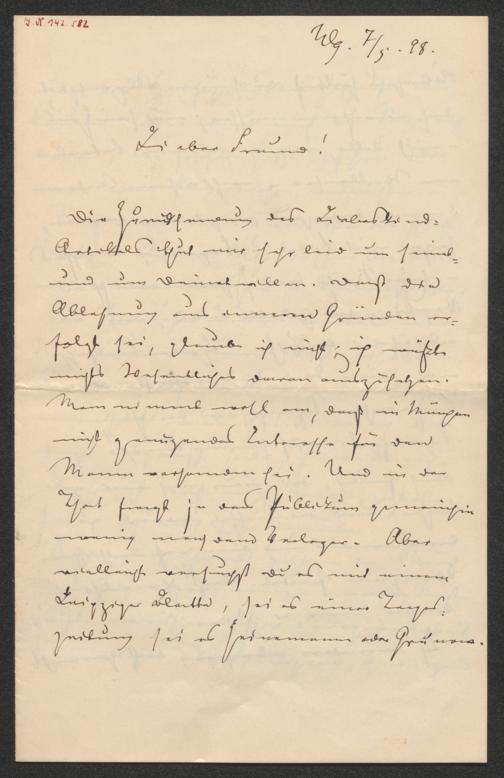 J. N. 142.582
Wg. 7/5. 98.
Lieber Freund!
Die Zurücksendung des Liebeskind-
Artikels thut mir sehr leid um seinet-
und um Deinetwillen. Daß die
Ablehnung aus inneren Gründen er-
folgt sei, glaube ich nicht; ich wüßte
nichts Wesentliches daran auszusetzen.
Man nimmt wohl an, daß in München
nicht genügendes Interesse für den
Mann vorhanden sei. Und in der
That fragt ja das Publikum gemeinhin
wenig nach dem Verleger. Aber
vielleicht versuchst du es mit einem
Leipziger Blatte, sei es einer Tages-
zeitung sei es Heinemann oder Grunow.